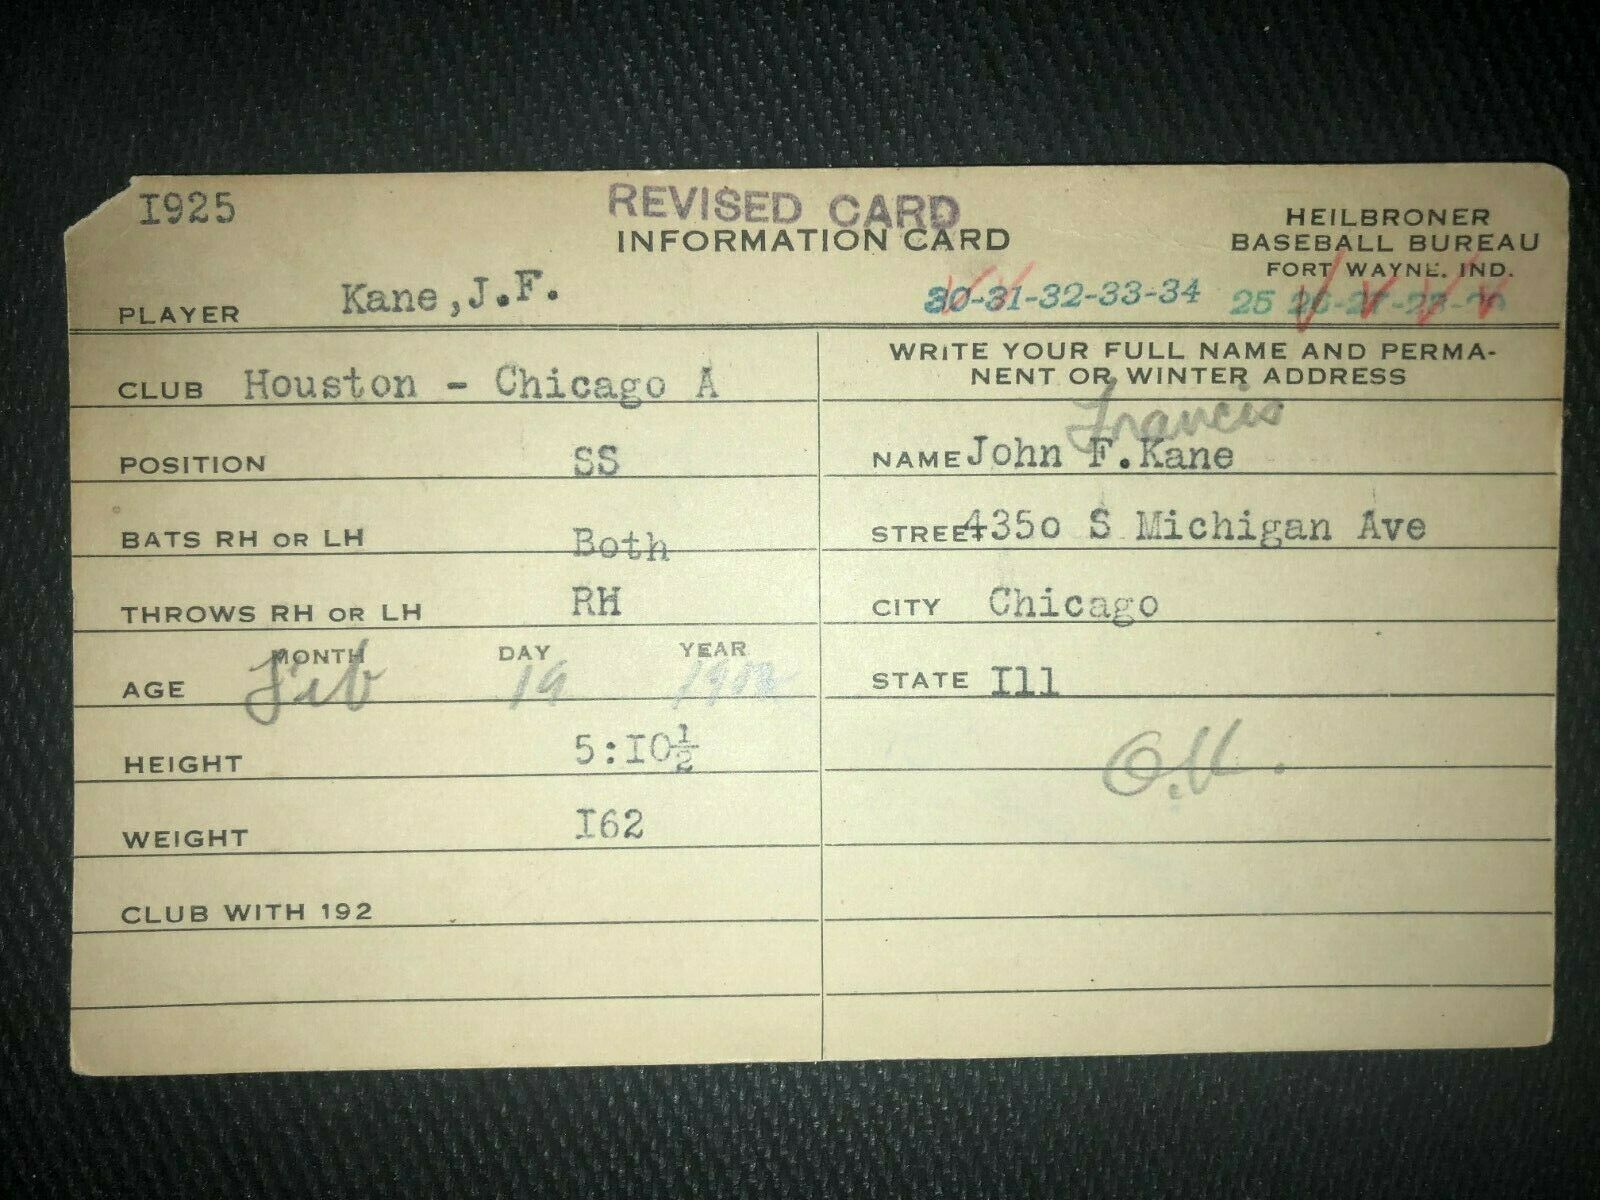 I925
REVISED CARD
INFORMATION CARD
HEILBRONER
BASEBALL BUREAU
FORT WAYNE, IND.
PLAYER Kane,J.F.
30-31-32-33-34 25 26-27-28-29
CLUB Houston - Chicago A
POSITION SS
BATS RH OR LH Both
THROWS RH OR LH RH
MONTH DAY YEAR
AGE Feb 19
HEIGHT 5:IO½
WEIGHT I62
CLUB WITH 192
WRITE YOUR FULL NAME AND PERMA-
NENT OR WINTER ADDRESS
Francis
NAME John F.Kane
STREET 435o S Michigan Ave
CITY Chicago
STATE Ill
O.K.